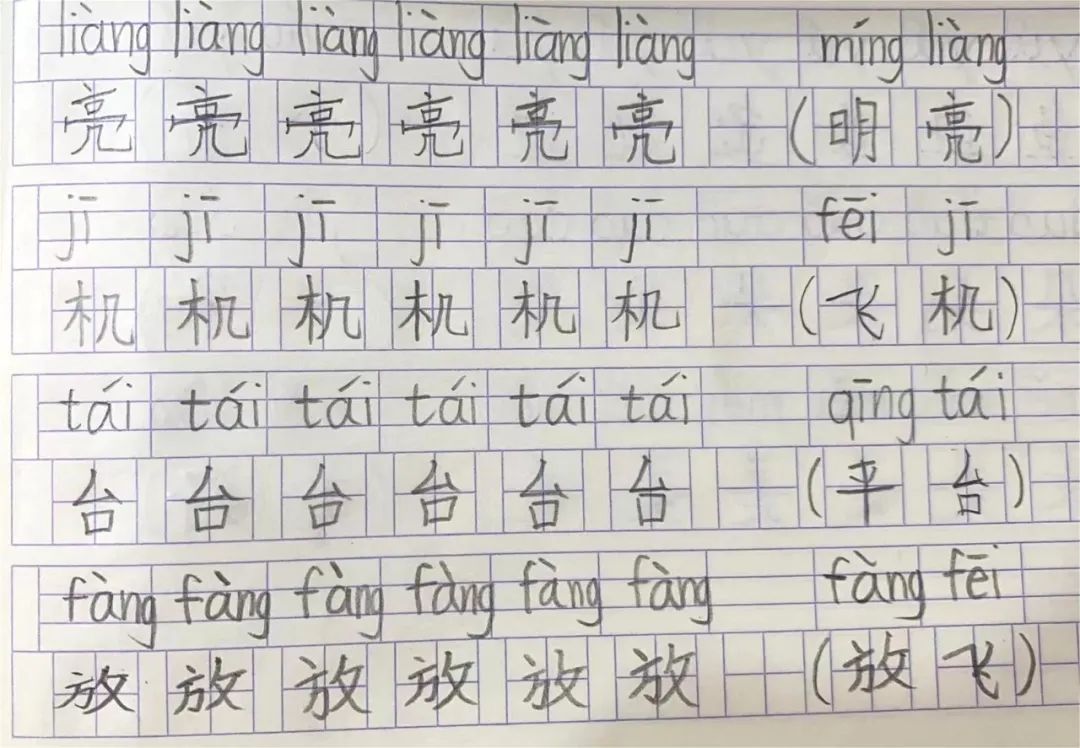 liàng liàng liàng liàng liàng liàng míng liàng
亮 亮 亮 亮 亮 亮 (明 亮)
jī jī jī jī jī jī fēi jī
机 机 机 机 机 机 (飞 机)
tái tái tái tái tái tái qīng tái
台 台 台 台 台 台 (平 台)
fàng fàng fàng fàng fàng fàng fàng fēi
放 放 放 放 放 放 (放 飞)